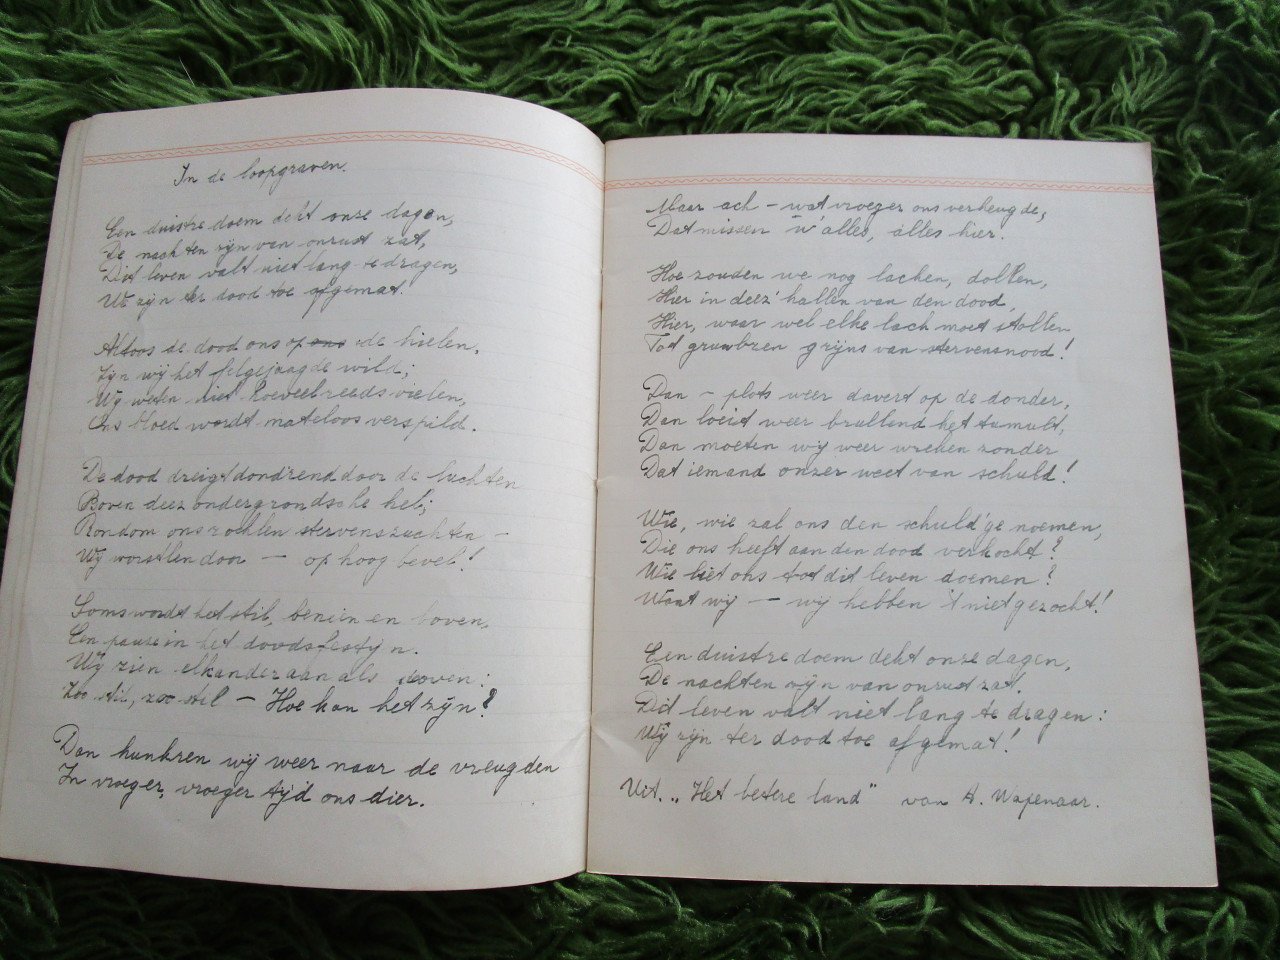 In de loopgraven.
Een duistre doem dekt onze dagen,
De nachten zijn van onrust zat,
Dit leven valt niet lang te dragen,
We zijn ter dood toe afgemat.
Altoos de dood ons op ons de hielen,
Zijn wij het felgejaagde wild;
Wij weten niet hoeveel reeds vielen,
Ons bloed wordt mateloos verspild.
De dood dreigt dondrend door de luchten
Boven deez ondergrondsche hel;
Rondom ons rochlen stervenszuchten –
Wij worstlen door – op hoog bevel!
Soms wordt het stil, benèn en boven,
Een pauze in het doodsfestijn.
Wij zien elkander aan als doven:
Zoo stil, zoo stil – Hoe kan het zijn?
Dan hunkren wij weer naar de vreugden
In vroeger, vroeger tijd ons dier.
Maar ach – wat vroeger ons verheugde,
Dat missen w' alles, alles hier.
Hoe zouden we nog lachen, dollen,
Hier in deez' hallen van den dood,
Hier, waar wel elke lach moet stollen
Tot gruwbren grijns van stervensnood!
Dan – plots weer davert op de donder,
Dan loeit weer brullend het tumult,
Dan moeten wij weer wreken zonder
Dat iemand onzer weet van schuld!
Wie, wie zal ons den schuld'ge noemen,
Die ons heeft aan den dood verkocht?
Wie liet ons tot dit leven doemen?
Want wij – wij hebben 't niet gezocht!
Een duistre doem dekt onze dagen,
De nachten zijn van onrust zat.
Dit leven valt niet lang te dragen:
Wij zijn ter dood toe afgemat!
Uit. „Het betere land" van A. Wapenaar.